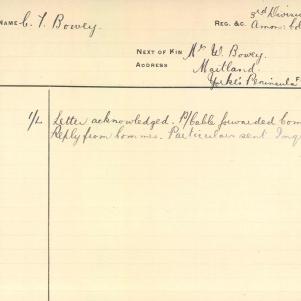 NAME C. T. Bowey. REG. &C. 3rd Divisi
Amm. Col
NEXT OF KIN Mr W. Bowey.
ADDRESS Maitland.
Yorke's Peninsula F
1/L Letter acknowledged. P/Cable forwarded Com
Reply from Commrs. Particulars sent Inq